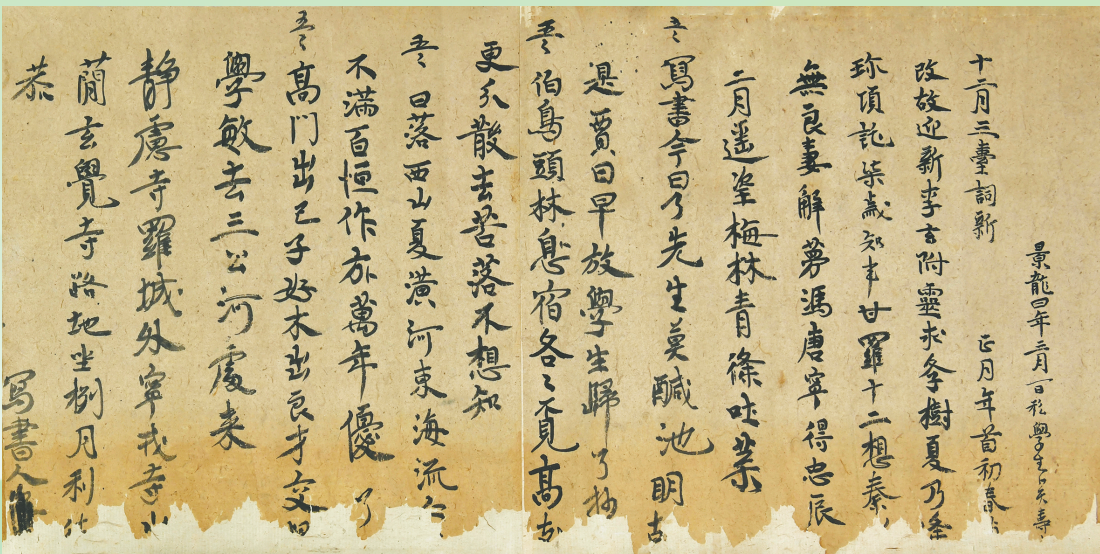 景龍四年三月一日私學生卜天壽
十二月三臺詞新 正月年首初春
改故迎新李玄附靈求學樹夏乃逢
珎項託柒歲知事甘羅十二想秦
無良妻解夢馮唐寧得忠辰
二月遥望梅林青條吐葉
五言 寫書今日了先生莫醎池明
是賈日早放學生歸 了抄
五言 伯鳥頭林息宿各々覓高
更分散去苦落不想知
五言 日落西山夏潢河東海流人
不滿百恒作方萬年優 了
五言 高門出己子好木出良才交
學敏去三公河處來
靜慮寺羅城外寧戎寺
蕳玄覺寺路地坐捌月利
恭 寫書人